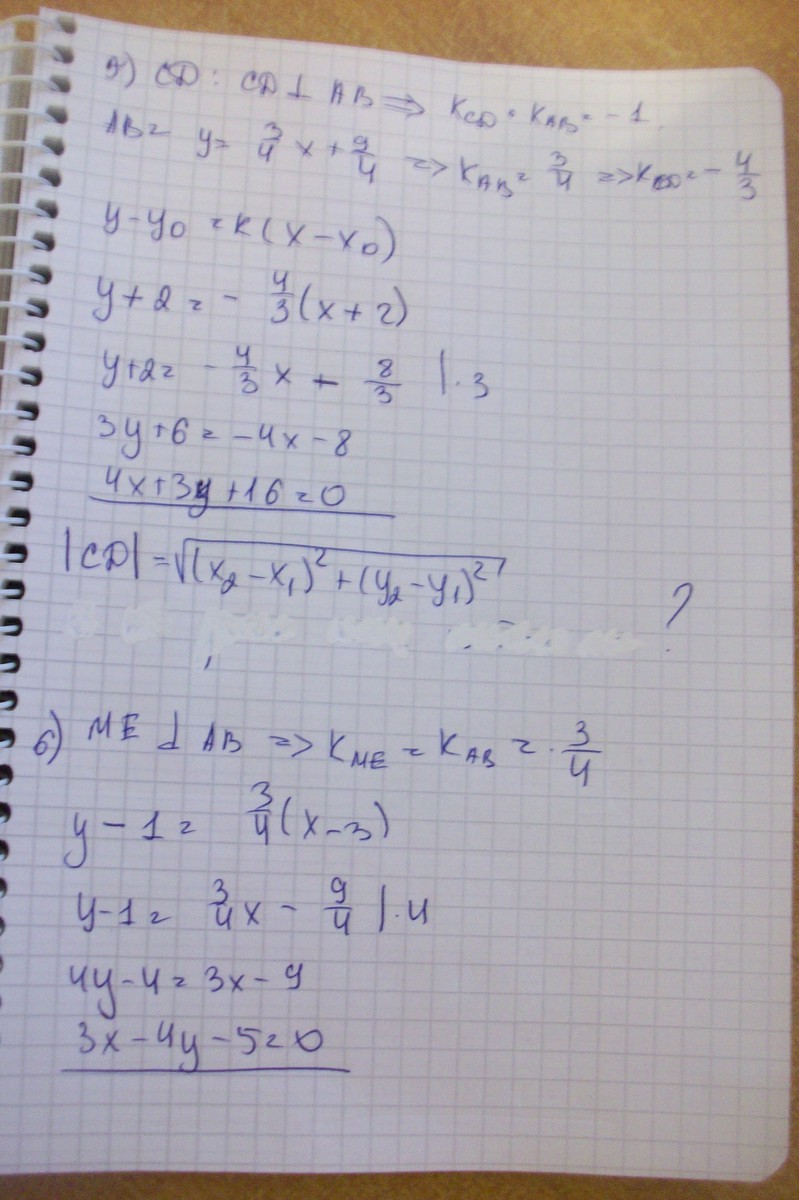 д) CD: CD ⊥ AB => K_CD · K_AB = -1.
AB = y = 3/4 x + 9/4 => K_AB = 3/4 => K_CD = - 4/3
y - y₀ = K(x - x₀)
y + 2 = - 4/3 (x + 2)
y + 2 = - 4/3 x - 8/3 | · 3
3y + 6 = -4x - 8
4x + 3y + 16 = 0
|CD| = √((x₂ - x₁)² + (y₂ - y₁)²)
?
6) ME ⊥ AB => K_ME = K_AB = · 3/4
y - 1 = 3/4 (x - 3)
y - 1 = 3/4 x - 9/4 | · 4
4y - 4 = 3x - 9
3x - 4y - 5 = 0